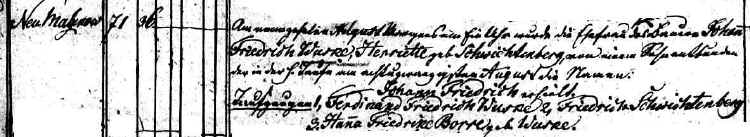 Neu Malzow 71 36 Am neunzehnten August Morgens um Ein Uhr wurde die Ehefrau des Bauern Johann
Friedrich Wurke, Henriette geb Schwichtenberg von einem Sohn entbunden
der in der h. Taufe am achtundzwanzigsten August die Namen:
Johann Friedrich erhielt.
Taufzeugen 1, Ferdinand Friedrich Wurke 2, Friedrich Schwichtenberg
3. Anna Friedrike Borre, geb Wurke.